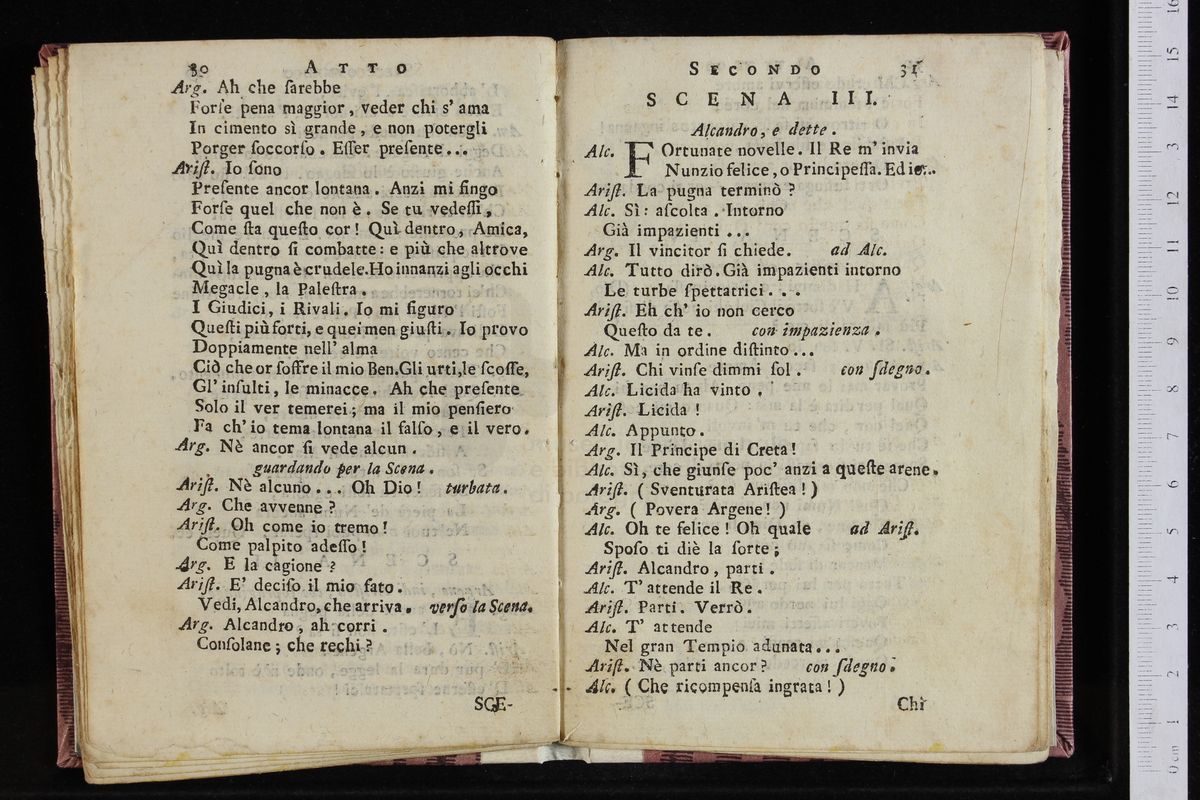 30 ATTO
Arg. Ah che ſarebbe
Forſe pena maggior, veder chi s' ama
In cimento sì grande, e non potergli
Porger ſoccorſo. Eſſer preſente...
Ariſt. Io ſono
Preſente ancor lontana. Anzi mi fingo
Forſe quel che non è. Se tu vedeſſi,
Come ſta queſto cor! Quì dentro, Amica,
Quì dentro ſi combatte: e più che altrove
Quì la pugna è crudele. Ho innanzi agli occhi
Megacle, la Paleſtra.
I Giudici, i Rivali. Io mi figuro
Queſti più forti, e quei men giuſti. Io provo
Doppiamente nell' alma
Ciò che or ſoffre il mio Ben. Gli urti, le ſcoſſe,
Gl' inſulti, le minacce. Ah che preſente
Solo il ver temerei; ma il mio penſiero
Fa ch' io tema lontana il falſo, e il vero.
Arg. Nè ancor ſi vede alcun.
guardando per la Scena.
Ariſt. Nè alcuno... Oh Dio! turbata.
Arg. Che avvenne?
Ariſt. Oh come io tremo!
Come palpito adeſſo!
Arg. E la cagione?
Ariſt. E' deciſo il mio fato.
Vedi, Alcandro, che arriva. verſo la Scena.
Arg. Alcandro, ah corri.
Conſolane; che rechi?
SCE-
SECONDO 31
SCENA III.
Alcandro, e dette.
Alc. FOrtunate novelle. Il Re m' invia
Nunzio felice, o Principeſſa. Ed io...
Ariſt. La pugna terminò?
Alc. Sì: aſcolta. Intorno
Già impazienti...
Arg. Il vincitor ſi chiede. ad Alc.
Alc. Tutto dirò. Già impazienti intorno
Le turbe ſpettatrici...
Ariſt. Eh ch' io non cerco
Queſto da te. con impazienza.
Alc. Ma in ordine diſtinto...
Ariſt. Chi vinſe dimmi ſol. con ſdegno.
Alc. Licida ha vinto.
Ariſt. Licida!
Alc. Appunto.
Arg. Il Principe di Creta!
Alc. Sì, che giunſe poc' anzi a queſte arene.
Ariſt. (Sventurata Ariſtea!)
Arg. (Povera Argene!)
Alc. Oh te felice! Oh quale ad Ariſt.
Spoſo ti diè la ſorte;
Ariſt. Alcandro, parti.
Alc. T' attende il Re.
Ariſt. Parti. Verrò.
Alc. T' attende
Nel gran Tempio adunata...
Ariſt. Nè parti ancor? con ſdegno.
Alc. (Che ricompenſa ingrata!)
Chi
0 cm 1 2 3 4 5 6 7 8 9 10 11 12 13 14 15 16